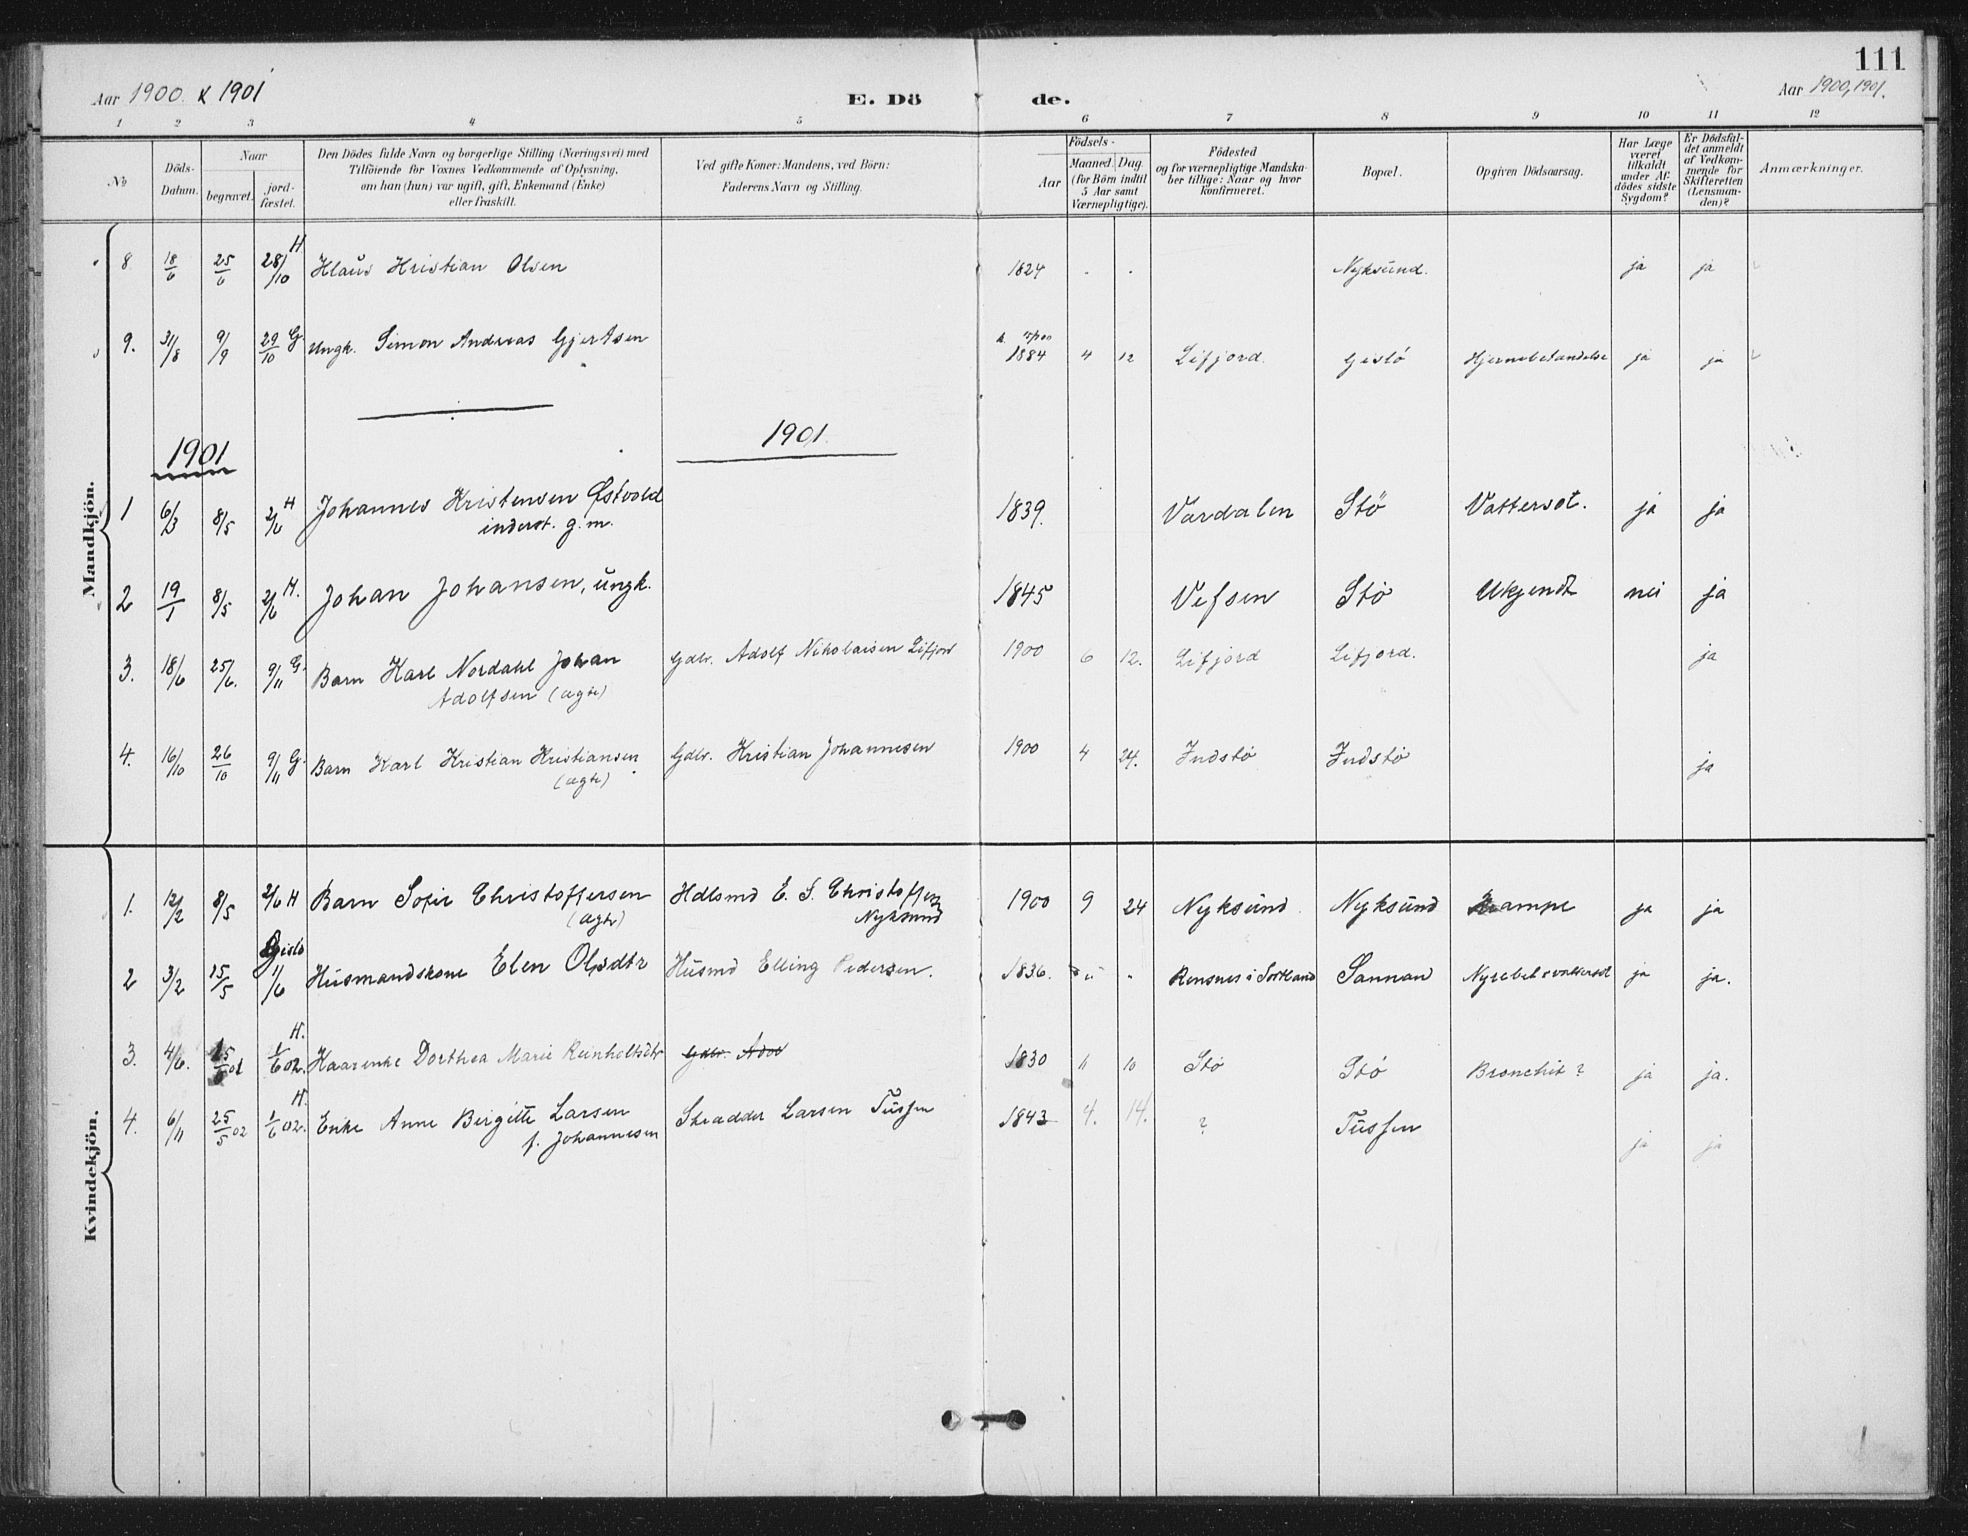 111
Aar 1900 & 1901
E. Dö de.
Aar 1900, 1901.
1 2 3 4 5 6 7 8 9 10 11 12
No
Döds-Datum.
Naar
begravet.
jord-fæstet.
Den Dödes fulde Navn og borgerlige Stilling (Næringsvei) med
Tilföiende for Voxnes Vedkommende af Oplysning,
om han (hun) var ugift, gift, Enkemand (Enke)
eller fraskilt.
Ved gifte Koner: Mandens, ved Börn:
Faderens Navn og Stilling.
Födsels-
Aar
Maaned. Dag.
(for Börn indtil
5 Aar samt
Værnepligtige).
Födested
og for værnepligtige Mandska-
ber tillige: Naar og hvor
konfirmeret.
Bopæl.
Opgiven Dödsaarsag.
Har Læge
været
tilkaldt
under Af-
dödes sidste
Sygdom?
Er Dödsfal-
det anmeldt
af Vedkom-
mende for
Skifteretten
(Lensman-
den)?
Anmærkninger.
Mandkjön.
8 18/6 25/6 28/10 H Klaus Kristian Olsen 1824 Nyksund. ja ja
9. 31/8 9/9 29/10 G Ungk. Simon Andreas Gjertsen 1884 4 12 Lifjord. Gistö Hjernebetændelse ja ja
1901 1901.
1 6/3 8/5 2/6 H Johannes Kristensen Østvold 1839. Værdalen Stö Vattersot. ja ja
inderst. g.m.
2 19/1 8/5 2/6 H. Johan Johansen, ungk. 1845 Vefsen Stö Ukjendt nei ja
3. 18/6 25/6. 9/11 G. Barn Karl Nordahl Johan Gdbr. Adolf Nikolaisen Lifjord 1900 6 12. Lifjord Lifjord. ja
Adolfsen (ægte)
4. 16/10 26/10 9/11 G. Barn Karl Kristian Kristiansen Gdbr. Kristian Johannesen 1900 4 24. Indstö Indstö ja
(ægte)
Kvindekjön.
1. 12/2 8/5 2/6 H Barn Sofie Christoffersen Hdlsmd E. S. Christoffersen 1900 9 24 Nyksund Nyksund Krampe ja ja
(ægte) Nyksund
2 3/2 15/5 Gistö 1/6 Husmandskone Elen Olsdtr Husmd Elling Pedersen. 1836. Rensnes i Sortland Sannan Nyrebet & vattersot ja ja.
3. 4/6. 15/5 01 1/6 02. H. Kaarenke Dorthea Marie Reinholtsdtr Gdbr. Adol 1830 11 10 Stö Stö Bronchit? ja ja.
4. 6/11 25/5 02 1/6 02. H. Enke Anne Birgitte Larsen Skrædder Larsen Tussen 1843 4. 14. ? Tussen ja ja
f. Johannesen